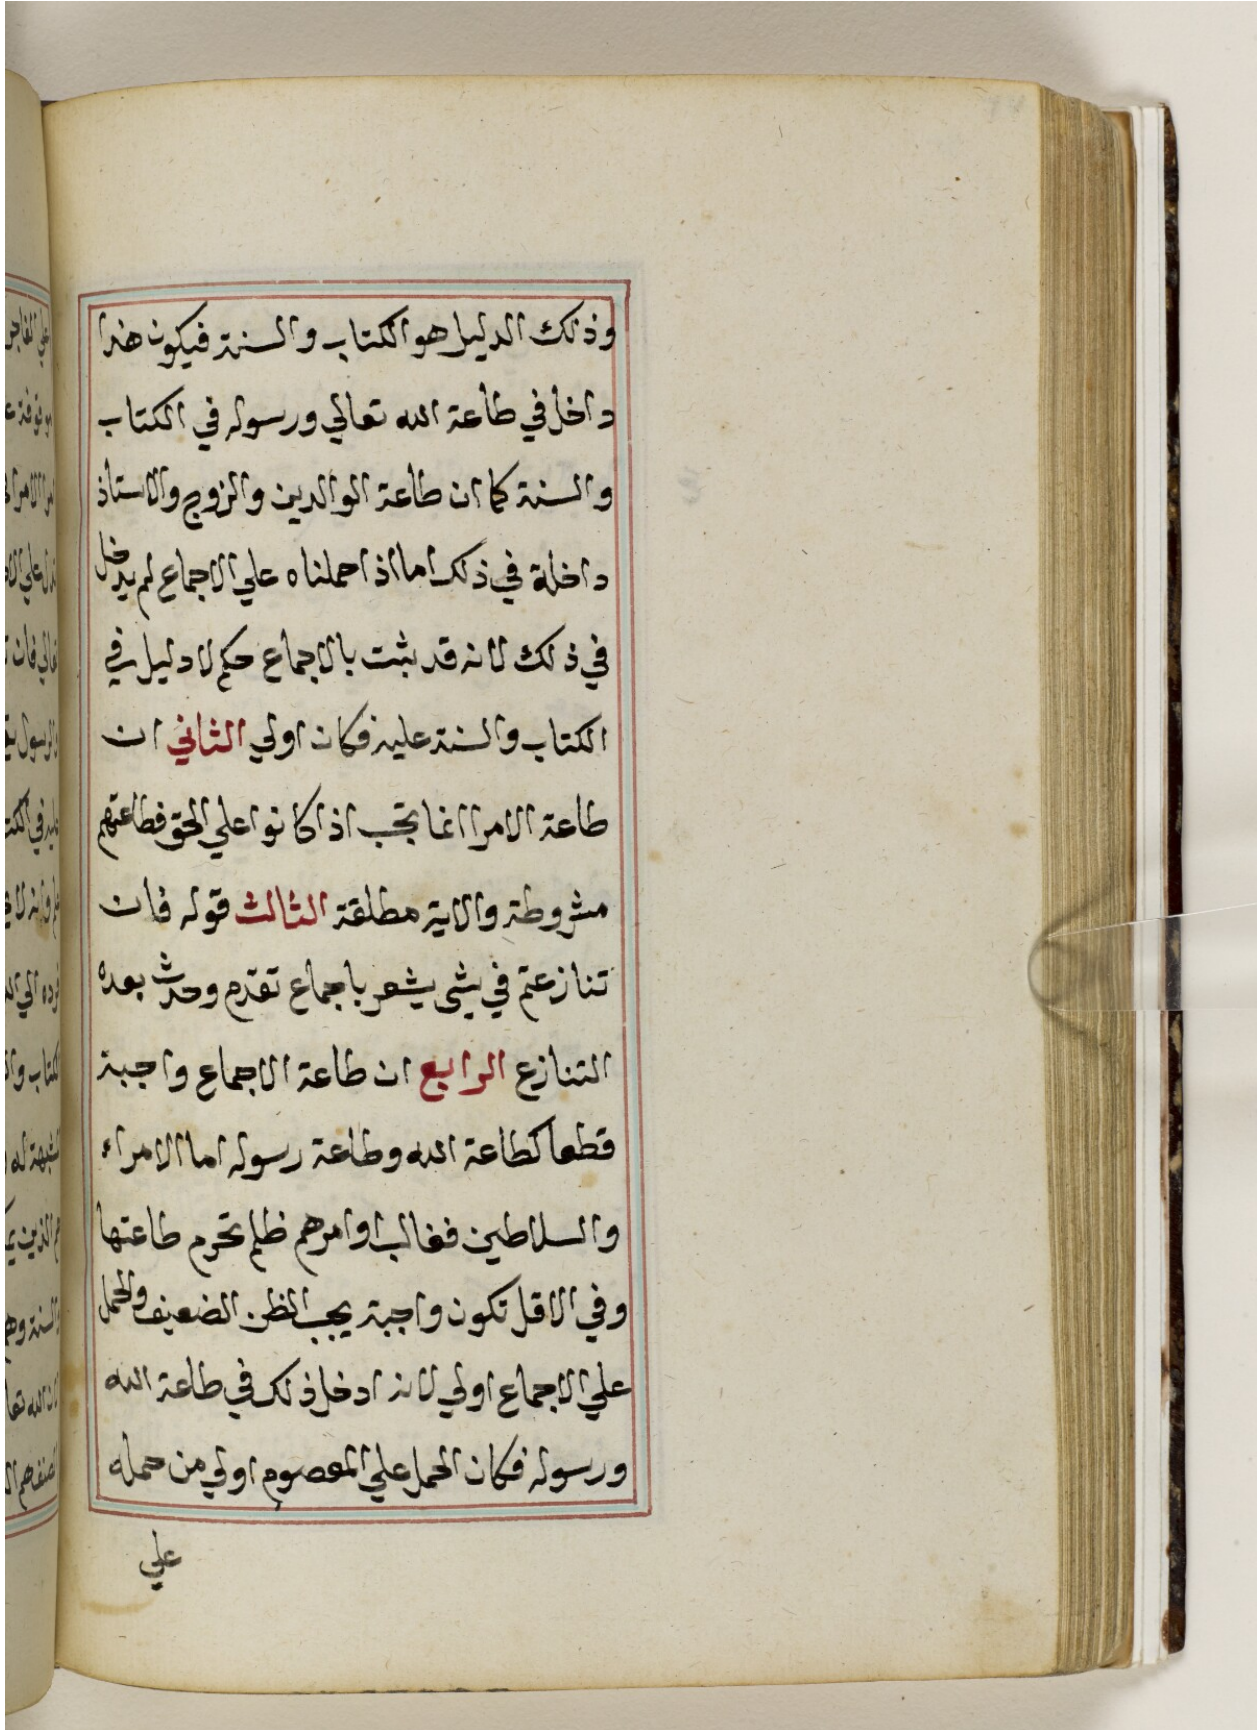 وذلك الدليل هو الكتاب والسنة فيكون هذا
داخل في طاعة الله تعالي ورسوله في الكتاب
والسنة كما ان طاعة الوالدين والزوج والاستاذ
داخلة في ذلك اما اذا حملناه علي الاجماع لم يدخل
في ذلك لانه قد يثبت بالاجماع حكم لا دليل في
الكتاب والسنة عليه فكان اولي الثاني ان
طاعة الامرا انما تجب اذا كانوا علي الحق فطاعتهم
مشروطة والاية مطلقة الثالث قوله فان
تنازعتم في شي يشعر باجماع تقدم وحدث بعده
التنازع الرابع ان طاعة الاجماع واجبة
قطعا كطاعة الله وطاعة رسوله اما الامراء
والسلاطين فغالب اوامرهم ظلم تحرم طاعتها
وفي الاقل تكون واجبة بحسب الظن الضعيف والحمل
علي الاجماع اولي لانه ادخل ذلك في طاعة الله
ورسوله فكان الحمل علي المعصوم اولي من حمله
علي